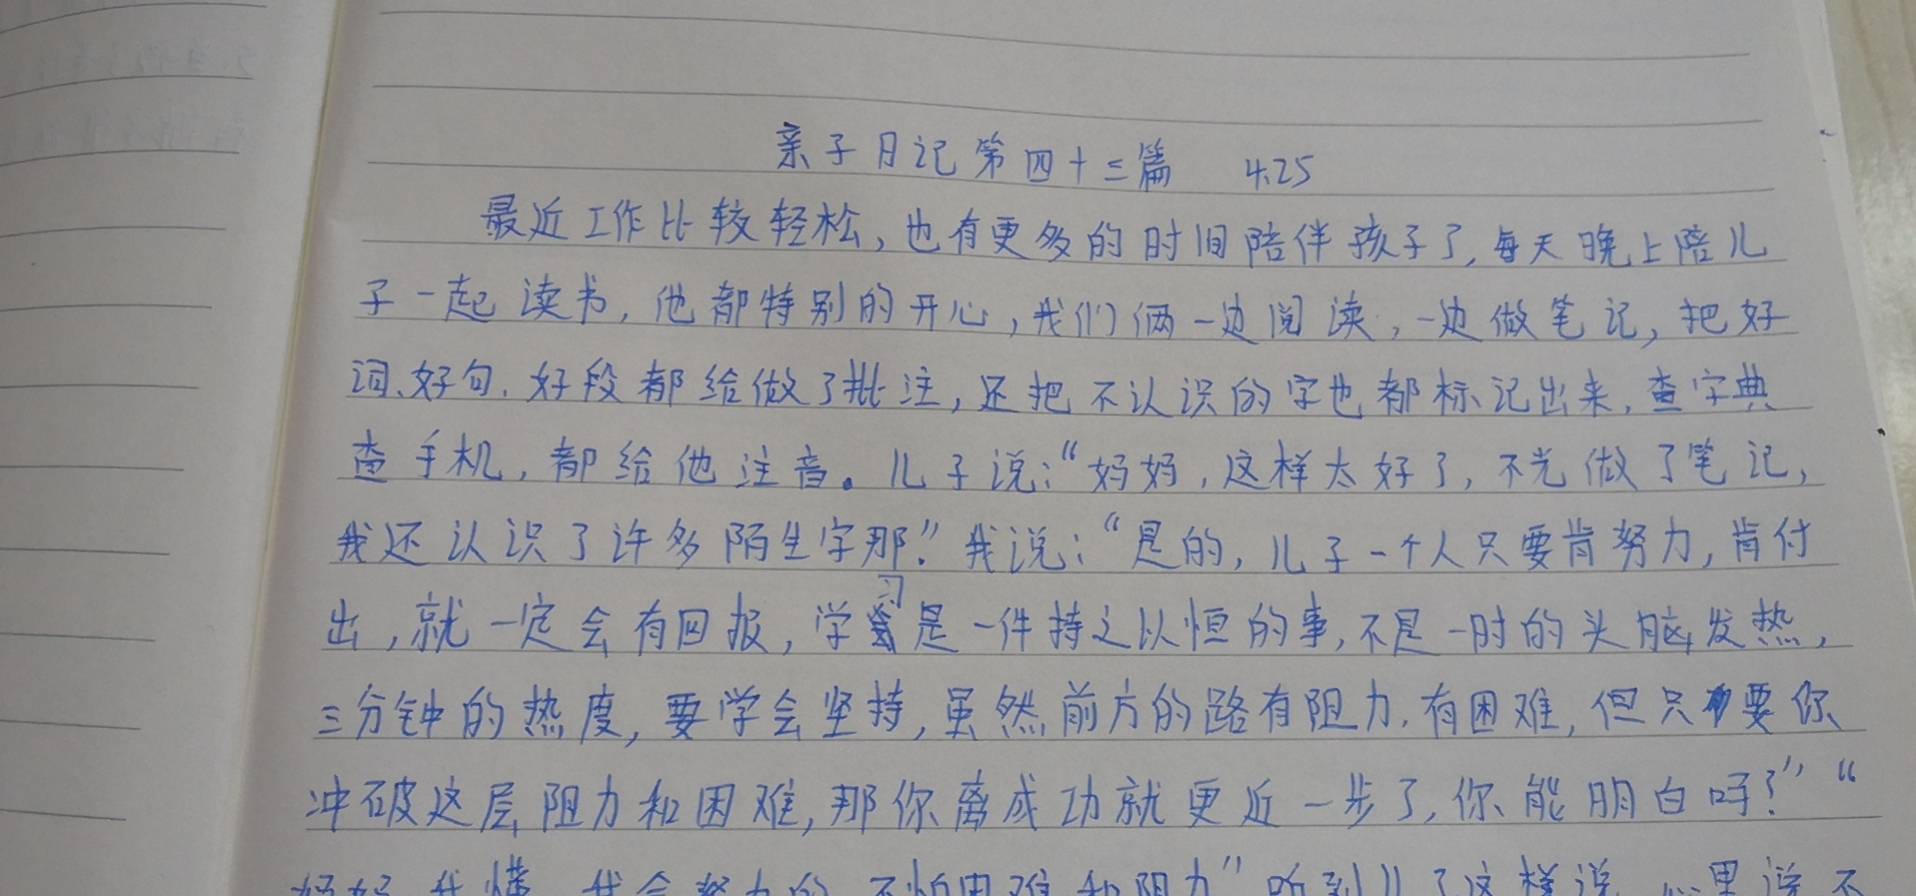 亲子日记第四十三篇 4.25
最近工作比较轻松,也有更多的时间陪伴孩子了,每天晚上陪儿
子一起读书,他都特别的开心,我们俩一边阅读,一边做笔记,把好
词、好句、好段都给做了批注,还把不认识的字也都标记出来,查字典
查手机,都给他注音。儿子说:“妈妈,这样太好了,不光做了笔记,
我还认识了许多陌生字那。”我说:“是的,儿子一个人只要肯努力,肯付
出,就一定会有回报,学习是一件持之以恒的事,不是一时的头脑发热,
三分钟的热度,要学会坚持,虽然前方的路有阻力,有困难,但只要你
冲破这层阻力和困难,那你离成功就更近一步了,你能明白吗?”“
妈妈,我懂,我会努力的,不怕困难和阻力”听到儿子这样说,心里说不